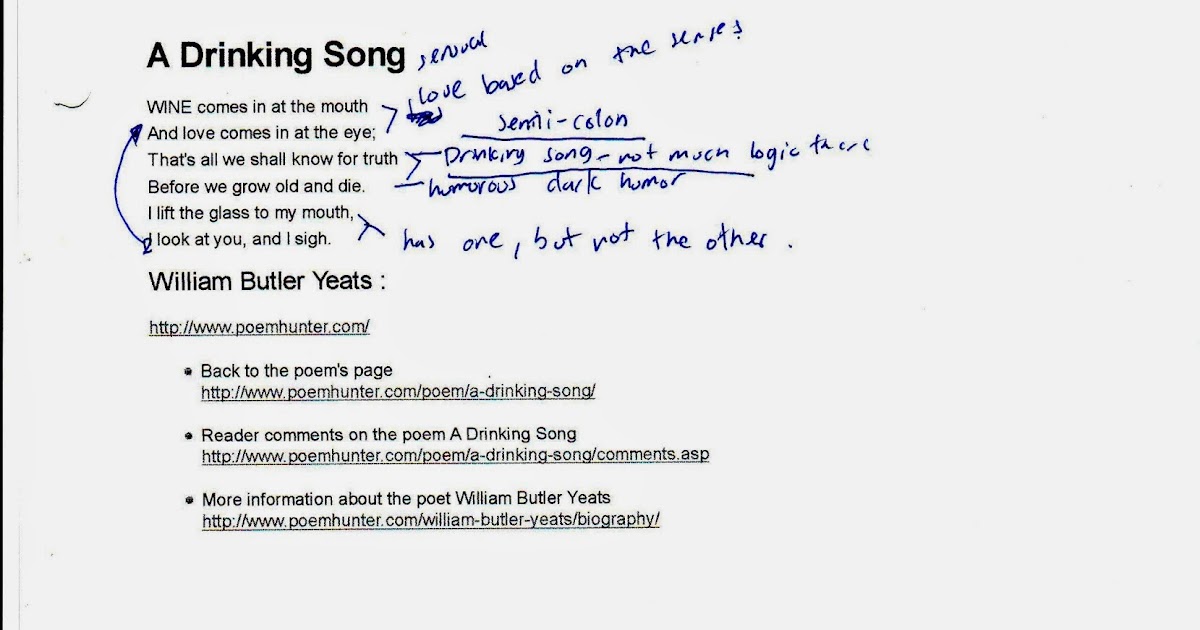 A Drinking Song sensual
Love based on the senses!
WINE comes in at the mouth
And love comes in at the eye;
semi-colon
That's all we shall know for truth Drinking song - not much logic there
Before we grow old and die. humorous dark humor
I lift the glass to my mouth,
I look at you, and I sigh. has one, but not the other.
William Butler Yeats :
http://www.poemhunter.com/
• Back to the poem's page
http://www.poemhunter.com/poem/a-drinking-song/
• Reader comments on the poem A Drinking Song
http://www.poemhunter.com/poem/a-drinking-song/comments.asp
• More information about the poet William Butler Yeats
http://www.poemhunter.com/william-butler-yeats/biography/